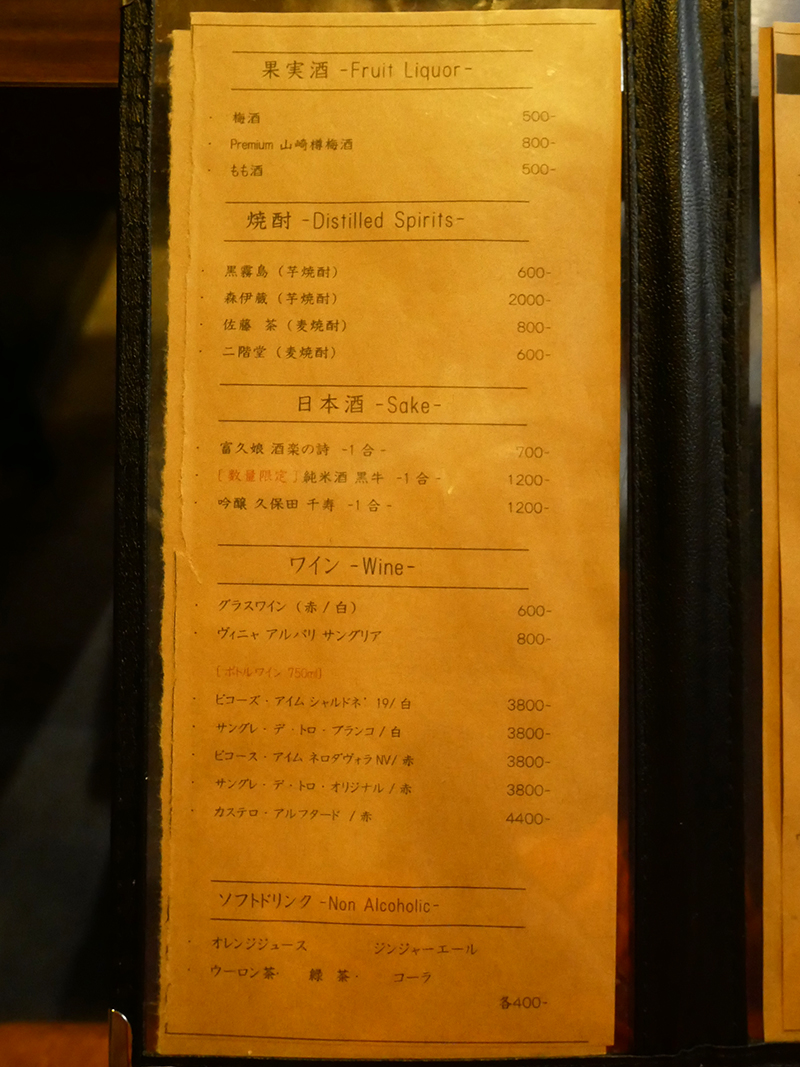 果実酒 -Fruit Liquor-
・ 梅酒 500-
・ Premium 山崎樽梅酒 800-
・ もも酒 500-
焼酎 -Distilled Spirits-
・ 黒霧島（芋焼酎） 600-
・ 森伊蔵（芋焼酎） 2000-
・ 佐藤 茶（麦焼酎） 800-
・ 二階堂（麦焼酎） 600-
日本酒 -Sake-
・ 富久娘 酒楽の詩 -1 合 - 700-
・ [ 数量限定 ] 純米酒 黒牛 -1 合 - 1200-
・ 吟醸 久保田 千寿 -1 合 - 1200-
ワイン -Wine-
・ グラスワイン（赤 / 白） 600-
・ ヴィニャ アルバリ サングリア 800-
[ ボトルワイン 750ml]
・ ビコーズ・アイム シャルドネ' 19/ 白 3800-
・ サングレ・デ・トロ・ブランコ / 白 3800-
・ ビコース・アイム ネロダヴォラ NV/ 赤 3800-
・ サングレ・デ・トロ・オリジナル / 赤 3800-
・ カステロ・アルフタード / 赤 4400-
ソフトドリンク -Non Alcoholic-
・ オレンジジュース ジンジャーエール
・ ウーロン茶・ 緑 茶・ コーラ
各400-